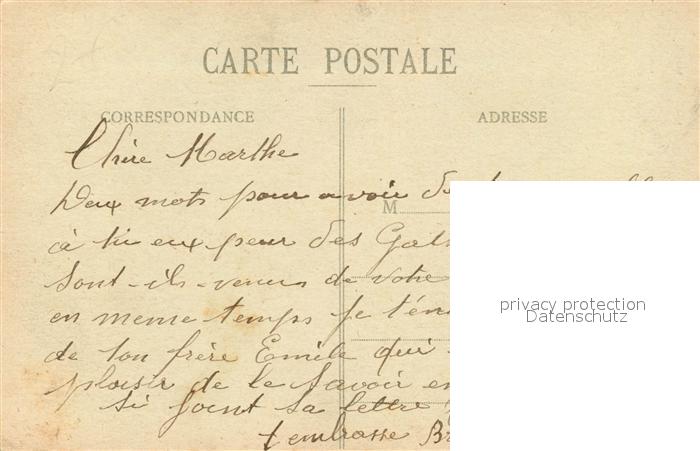 CARTE POSTALE
CORRESPONDANCE
ADRESSE
Chère Marthe
Deux mots pour avoir
M
à ki eux peur des
sont-ils-venus de votre
en meme temps je
de ton frère Emile qui
plaisir de le savoir en
si joint sa lettre
t embrasse
privacy protection
Datenschutz